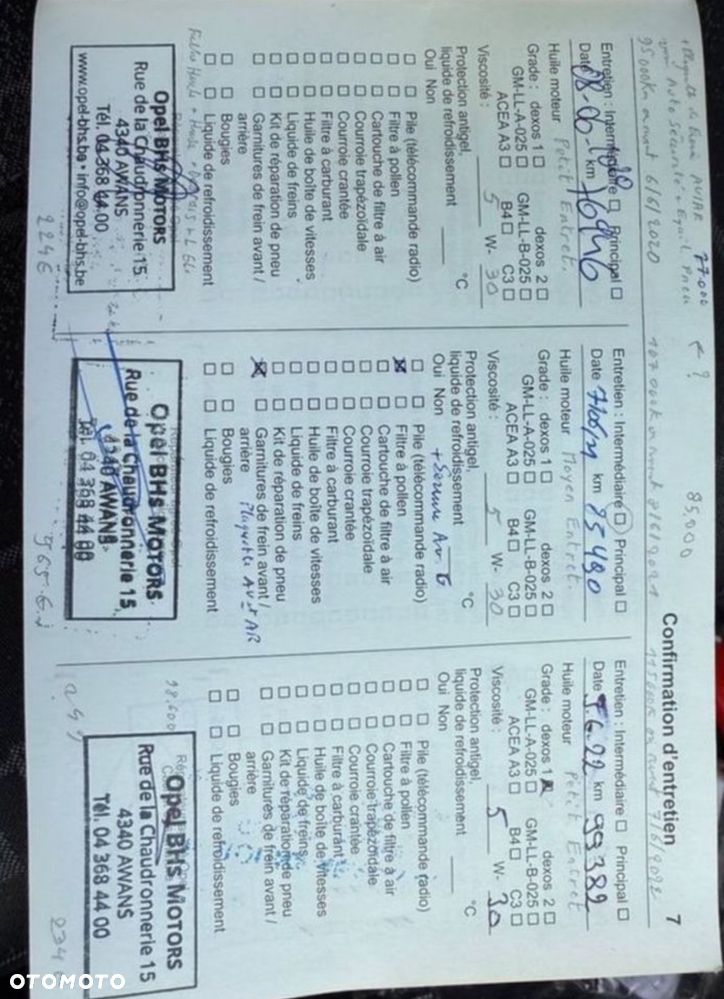 Confirmation d'entretien
7
77.000
95000Km avant 6/6/2020
Entretien : Intermédiaire □ Principal □
Date km 76946
Huile moteur Petit Entret.
Grade : dexos 1 □ dexos 2 □
GM-LL-A-025 □ GM-LL-B-025 □
ACEA A3 □ B4 □ C3 □
Viscosité : 5 W- 30
Protection antigel,
liquide de refroidissement °C
Oui Non
□ □ Pile (télécommande radio)
□ □ Filtre à pollen
□ □ Cartouche de filtre à air
□ □ Courroie trapézoïdale
□ □ Courroie crantée
□ □ Filtre à carburant
□ □ Huile de boîte de vitesses
□ □ Liquide de freins
□ □ Kit de réparation de pneu
□ □ Garnitures de frein avant /
arrière
□ □ Bougies
□ □ Liquide de refroidissement
Opel BHS MOTORS
Rue de la Chaudronnerie 15
4340 AWANS
Tél. 04 368 44 00
www.opel-bhs.be • info@opel-bhs.be
224€
85.000
Entretien : Intermédiaire □ Principal □
Date km 85490
Huile moteur Moyen Entret.
Grade : dexos 1 □ dexos 2 □
GM-LL-A-025 □ GM-LL-B-025 □
ACEA A3 □ B4 □ C3 □
Viscosité : 5 W- 30
Protection antigel,
liquide de refroidissement °C
Oui Non
□ □ Pile (télécommande radio)
☒ □ Filtre à pollen
□ □ Cartouche de filtre à air
□ □ Courroie trapézoïdale
□ □ Courroie crantée
□ □ Filtre à carburant
□ □ Huile de boîte de vitesses
□ □ Liquide de freins
□ □ Kit de réparation de pneu
☒ □ Garnitures de frein avant /
arrière Plaquettes AV + AR
□ □ Bougies
□ □ Liquide de refroidissement
Opel BHS MOTORS
Rue de la Chaudronnerie 15
4340 AWANS
Tél. 04 368 44 00
115000Km avant 7/6/2022
Entretien : Intermédiaire □ Principal □
Date 7.6.22 km 99382
Huile moteur Petit Entret
Grade : dexos 1 ☒ dexos 2 □
GM-LL-A-025 □ GM-LL-B-025 □
ACEA A3 □ B4 □ C3 □
Viscosité : 5 W- 30
Protection antigel,
liquide de refroidissement °C
Oui Non
□ □ Pile (télécommande radio)
□ □ Filtre à pollen
□ □ Cartouche de filtre à air
□ □ Courroie trapézoïdale
□ □ Courroie crantée
□ □ Filtre à carburant
□ □ Huile de boîte de vitesses
□ □ Liquide de freins
□ □ Kit de réparation de pneu
□ □ Garnitures de frein avant /
arrière
□ □ Bougies
□ □ Liquide de refroidissement
98.600
Opel BHS MOTORS
Rue de la Chaudronnerie 15
4340 AWANS
Tél. 04 368 44 00
234€
OTOMOTO